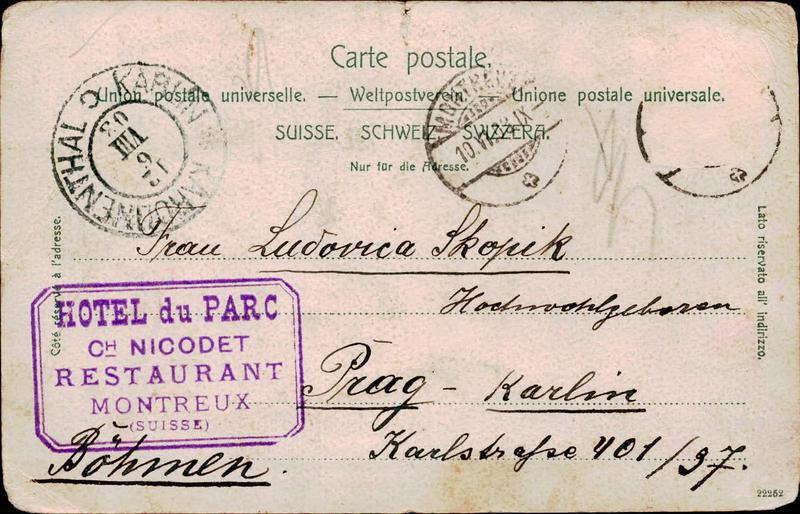 Carte postale.
Union postale universelle. — Weltpostverein. — Unione postale universale.
SUISSE. SCHWEIZ. SVIZZERA.
Nur für die Adresse.
KAROLINENTHAL KARLIN
12 9 VIII 03
MONTREUX
Côté réservé à l'adresse.
Lato riservato all' indirizzo.
Frau Ludovica Skopik
Hochwohlgeboren
Prag - Karlin
Karlstraße 401/37.
Böhmen.
HOTEL du PARC
CH NICODET
RESTAURANT
MONTREUX
(SUISSE)
22252